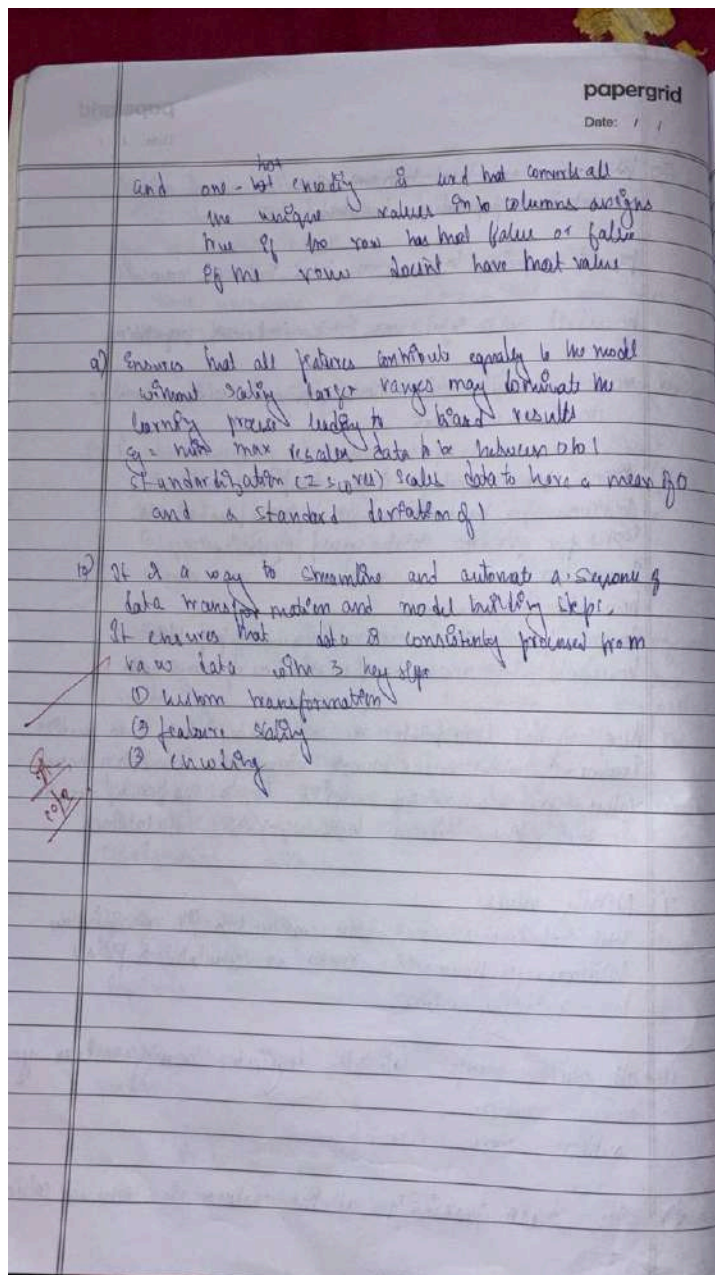 papergrid
Date: / /
hot
and one-hot encoding is used that converts all
the unique values into columns assigns
true if the row has that value or false
if the rows docint have that value
9) Ensures that all features contribute equally to the model
without scaling larger ranges may dominate the
learning process leading to biased results
eg = min max rescales data to be between 0 to 1
standardization (z scores) scales data to have a mean of 0
and a standard deviation of 1
10) It is a way to streamline and automate a of
data transformation and model building steps.
It ensures that data is consistently processed from
raw data with 3 key steps
① custom transformation
② feature scaling
③ encoding